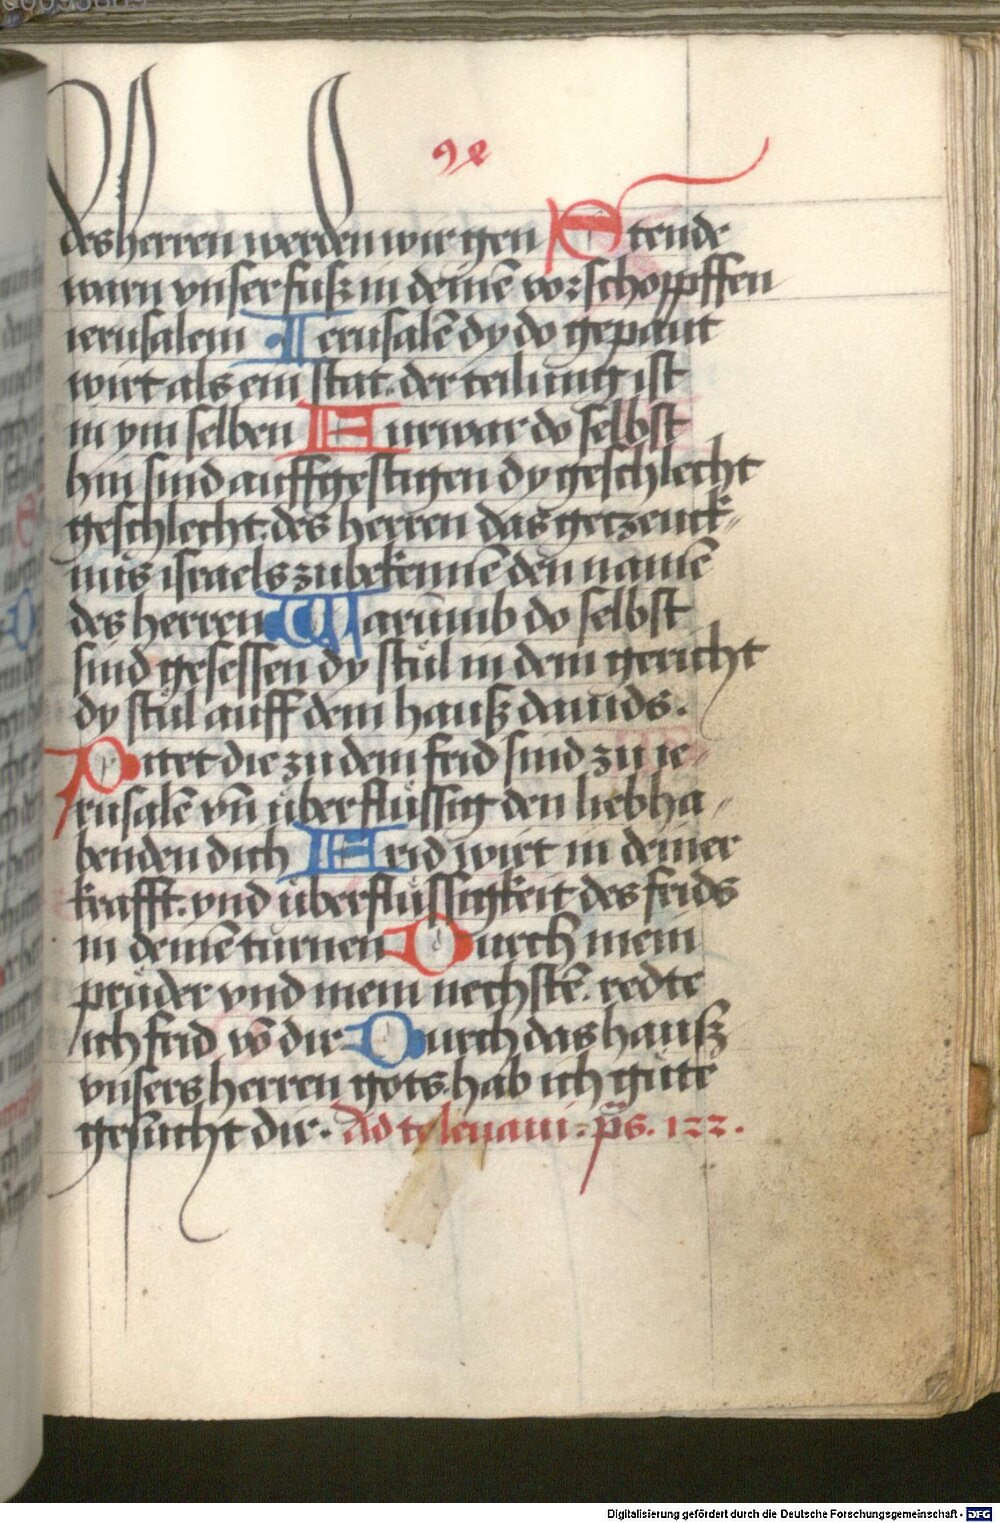 des herren werden wir gen Stende
warn vnser fusz in deinē vorschoppffen
ierusalem Jerusalē dy do gepaut
wirt als ein stat. der teilung ist
in ym selben Furwar do selbst
hin sind auffgestigen dy geschlecht
geschlecht. des herren das getzeuck-
nus israels zubekennē den namē
des herren Warumb do selbst
sind gesessen dy stůl in dem gericht
dy stůl auff dem hausz dauids.
Pitet die zu dem frid sind zu ie-
rusalē vn̄ überflüssig den liebha-
benden dich Frid wirt in deiner
krafft. vnd überflüssigkeit des frids
in deinē türnen Durch mein
prüder vnd mein nechstē. redte
ich frid vō dir Durch das hausz
vnsers herren gots. hab ich güte
gesucht dir. Ad te leuaui. ps. 122.
Digitalisierung gefördert durch die Deutsche Forschungsgemeinschaft - DFG